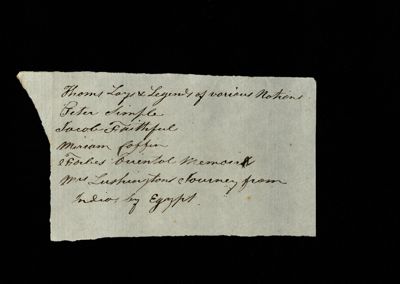 Thoms Lays & Legends of various Nations
Peter Simple
Jacob Faithful
Miriam Coffin
Forbes Oriental Memoirs
Mrs Lushingtons Journey from
India by Egypt.